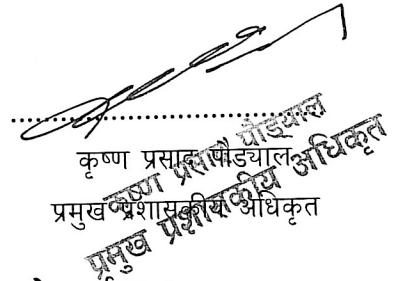 कृष्ण प्रसाद पौड्याल
प्रमुख प्रशासकीय अधिकृत
कृष्ण प्रसाद पौड्याल
प्रमुख प्रशासकीय अधिकृत